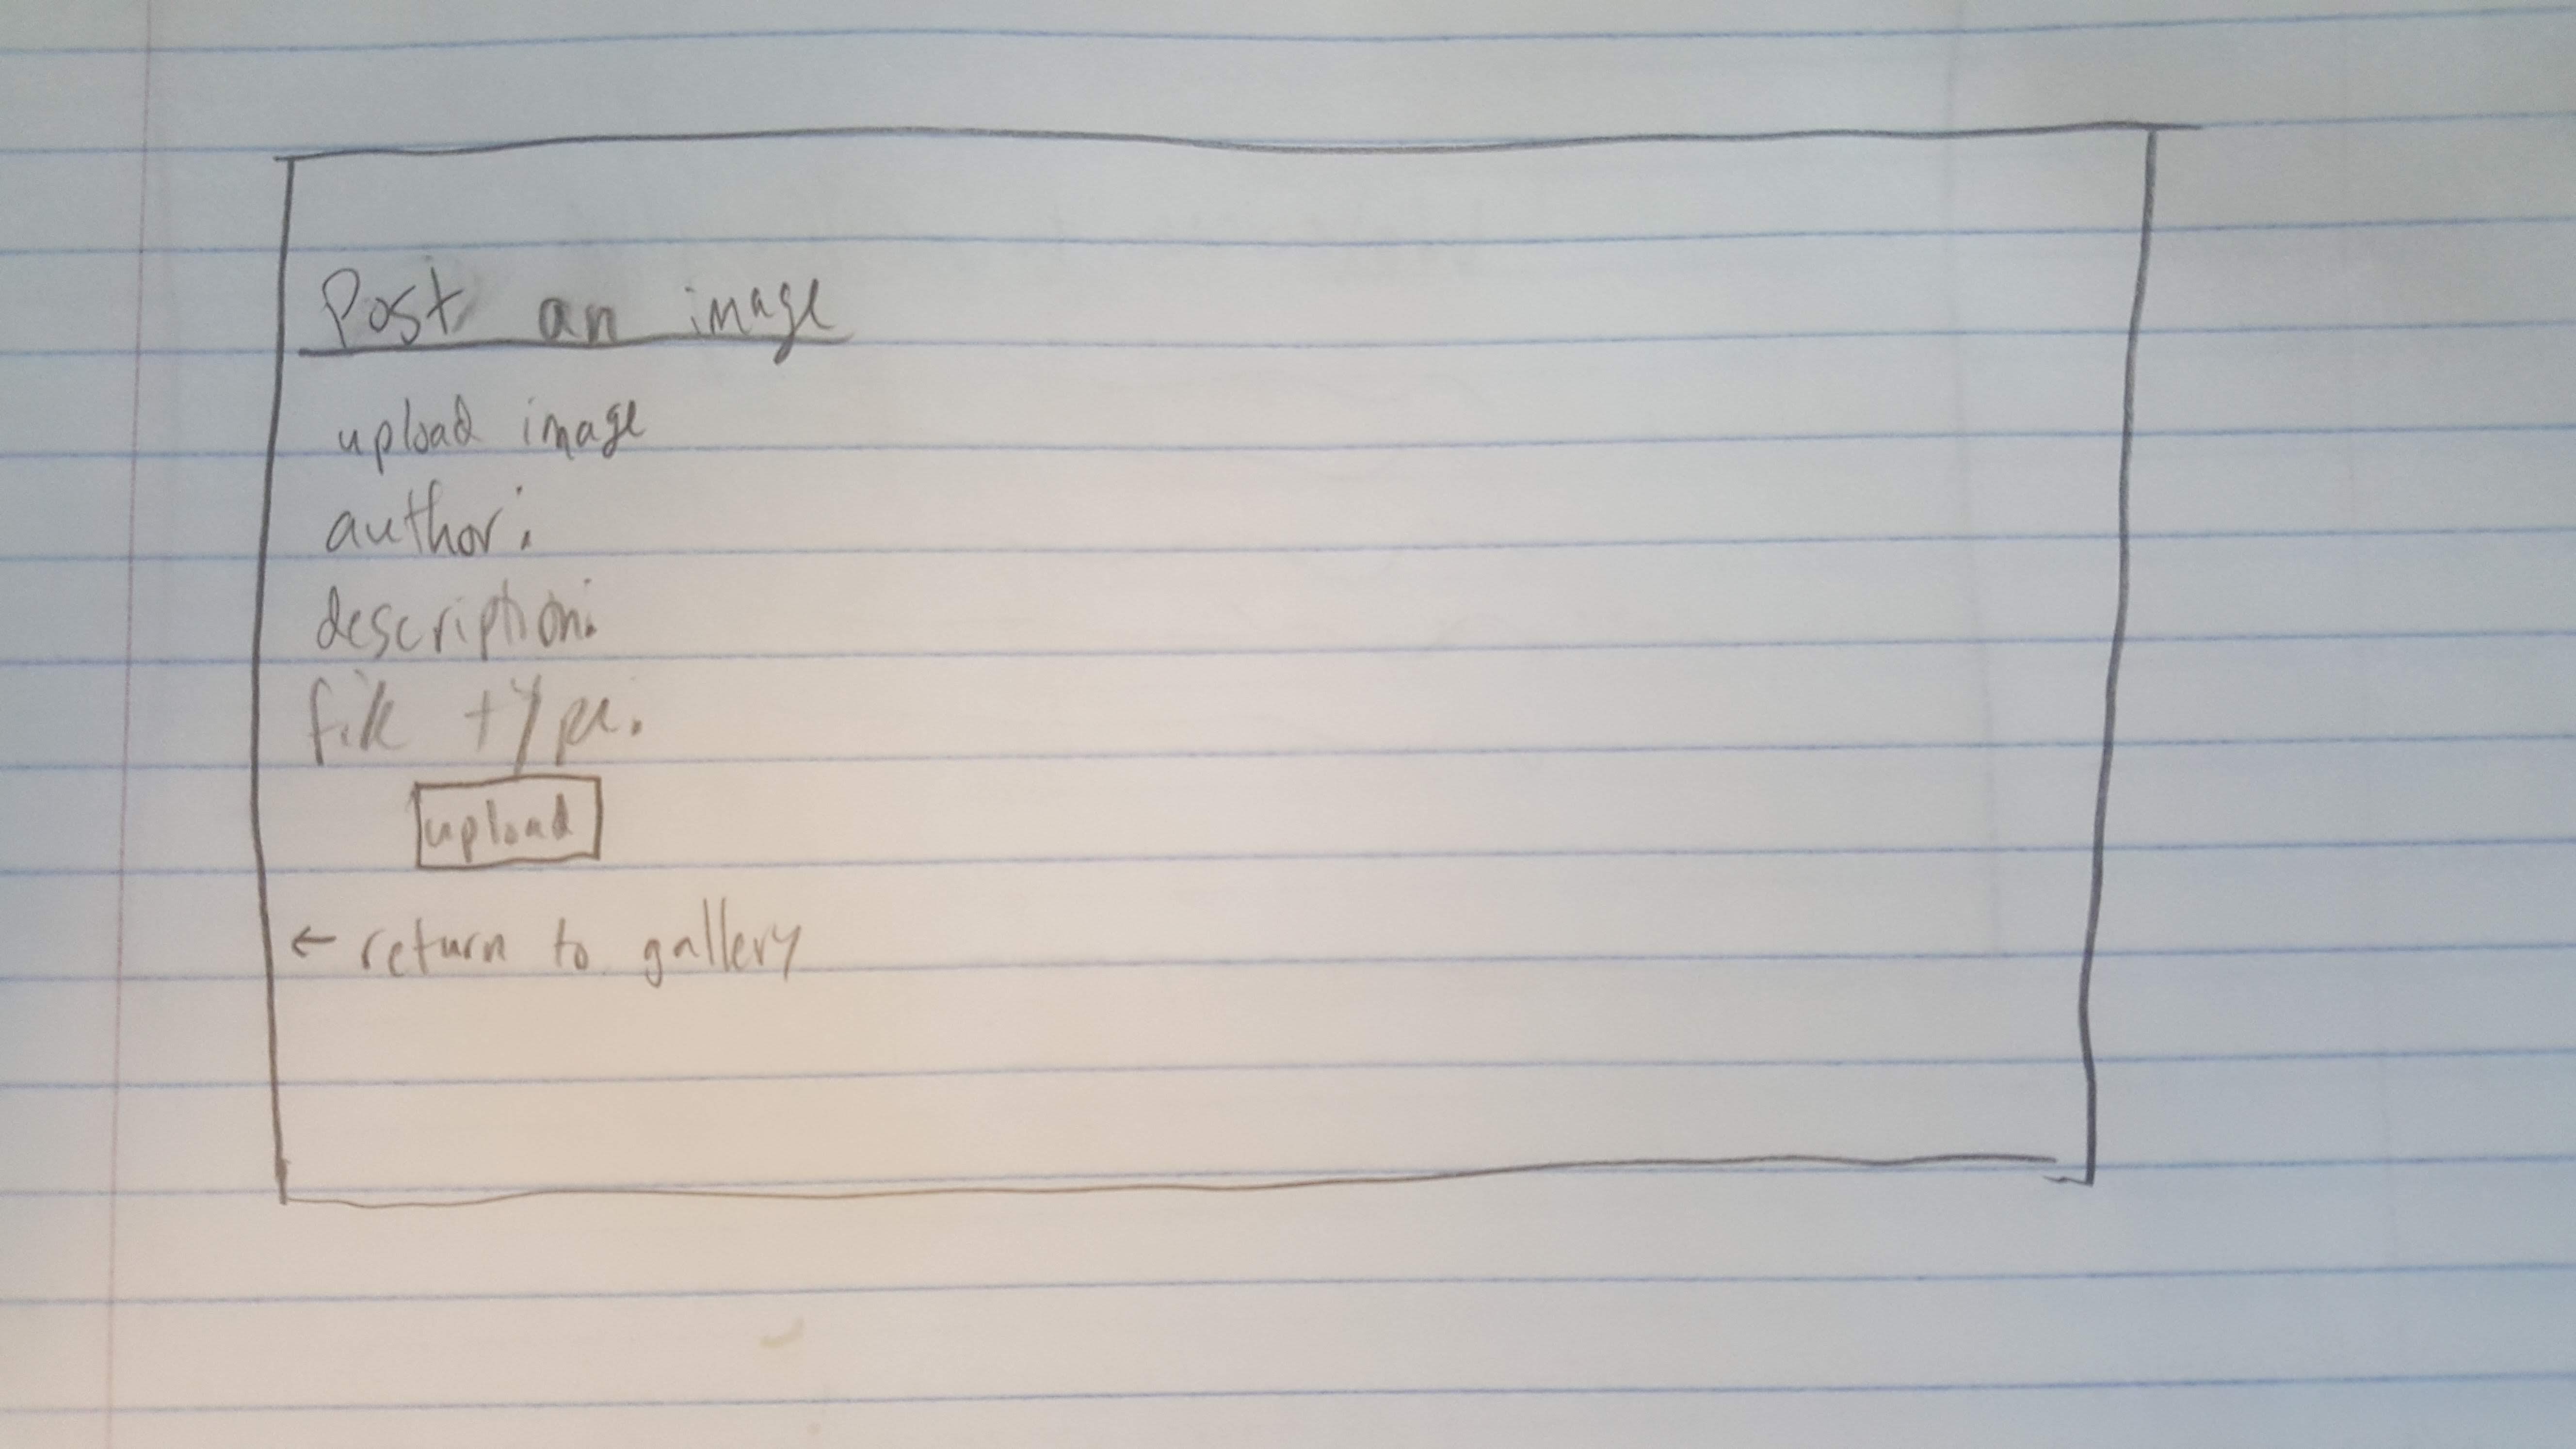 Post an image
upload image
author:
description:
file type:
upload
← return to gallery